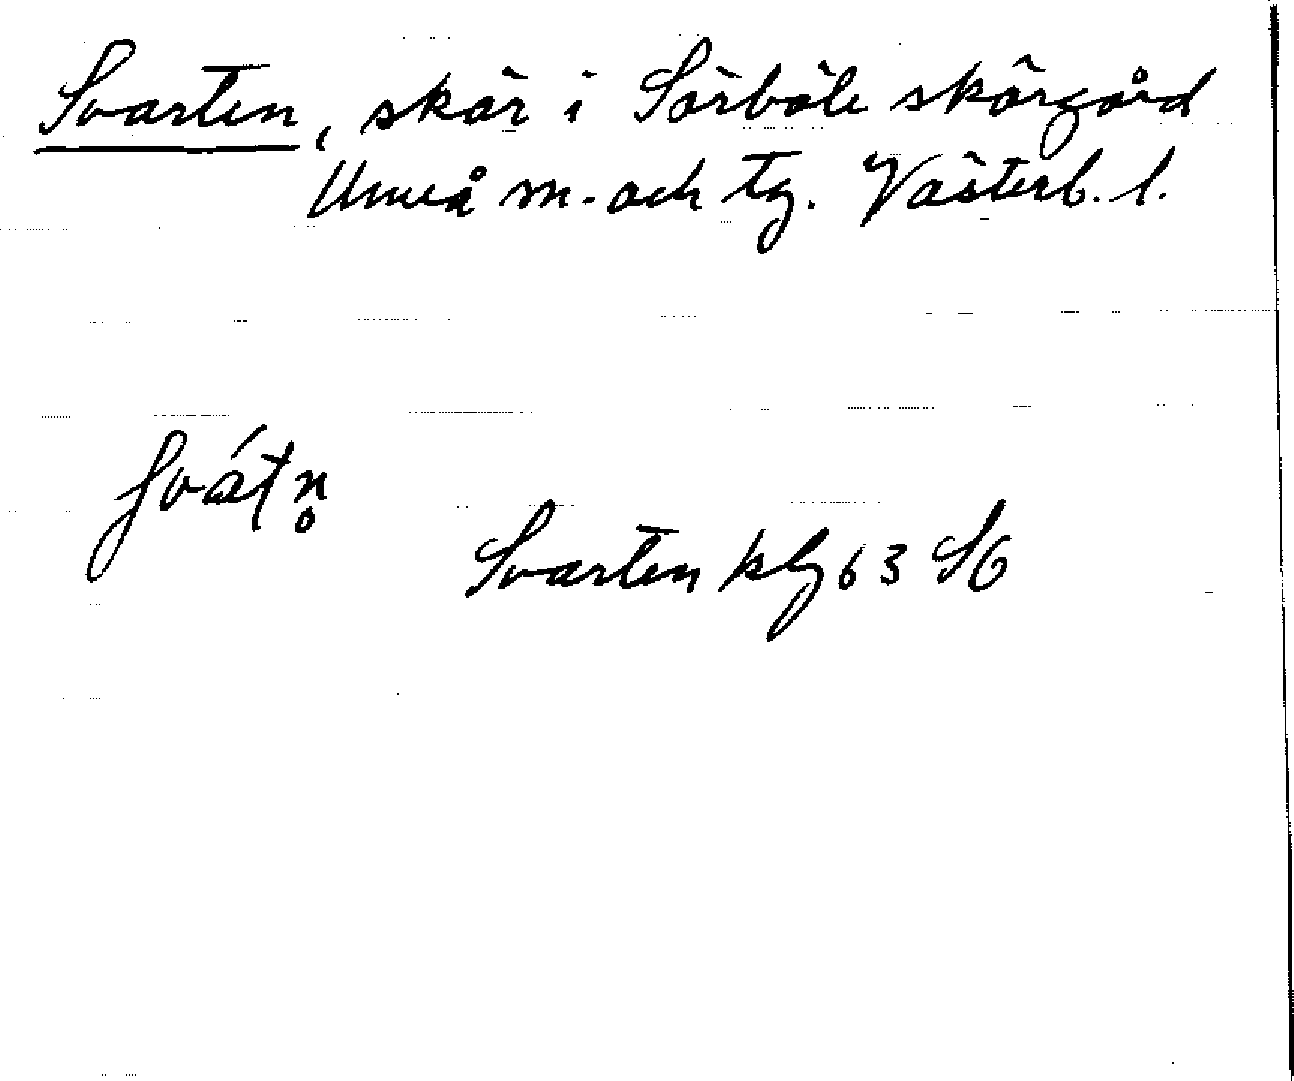 Svarten, skär i Sörböle skärgård
Umeå m. och tg. Västerb. l.
svátn̥
Svarten klg 63 SG